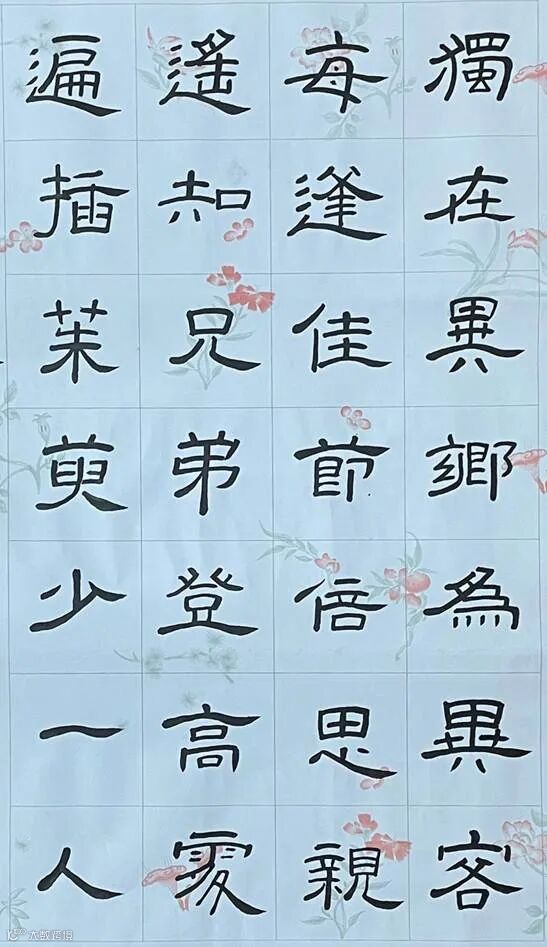 獨在異鄉為異客
每逢佳節倍思親
遙知兄弟登高處
遍插茱萸少一人